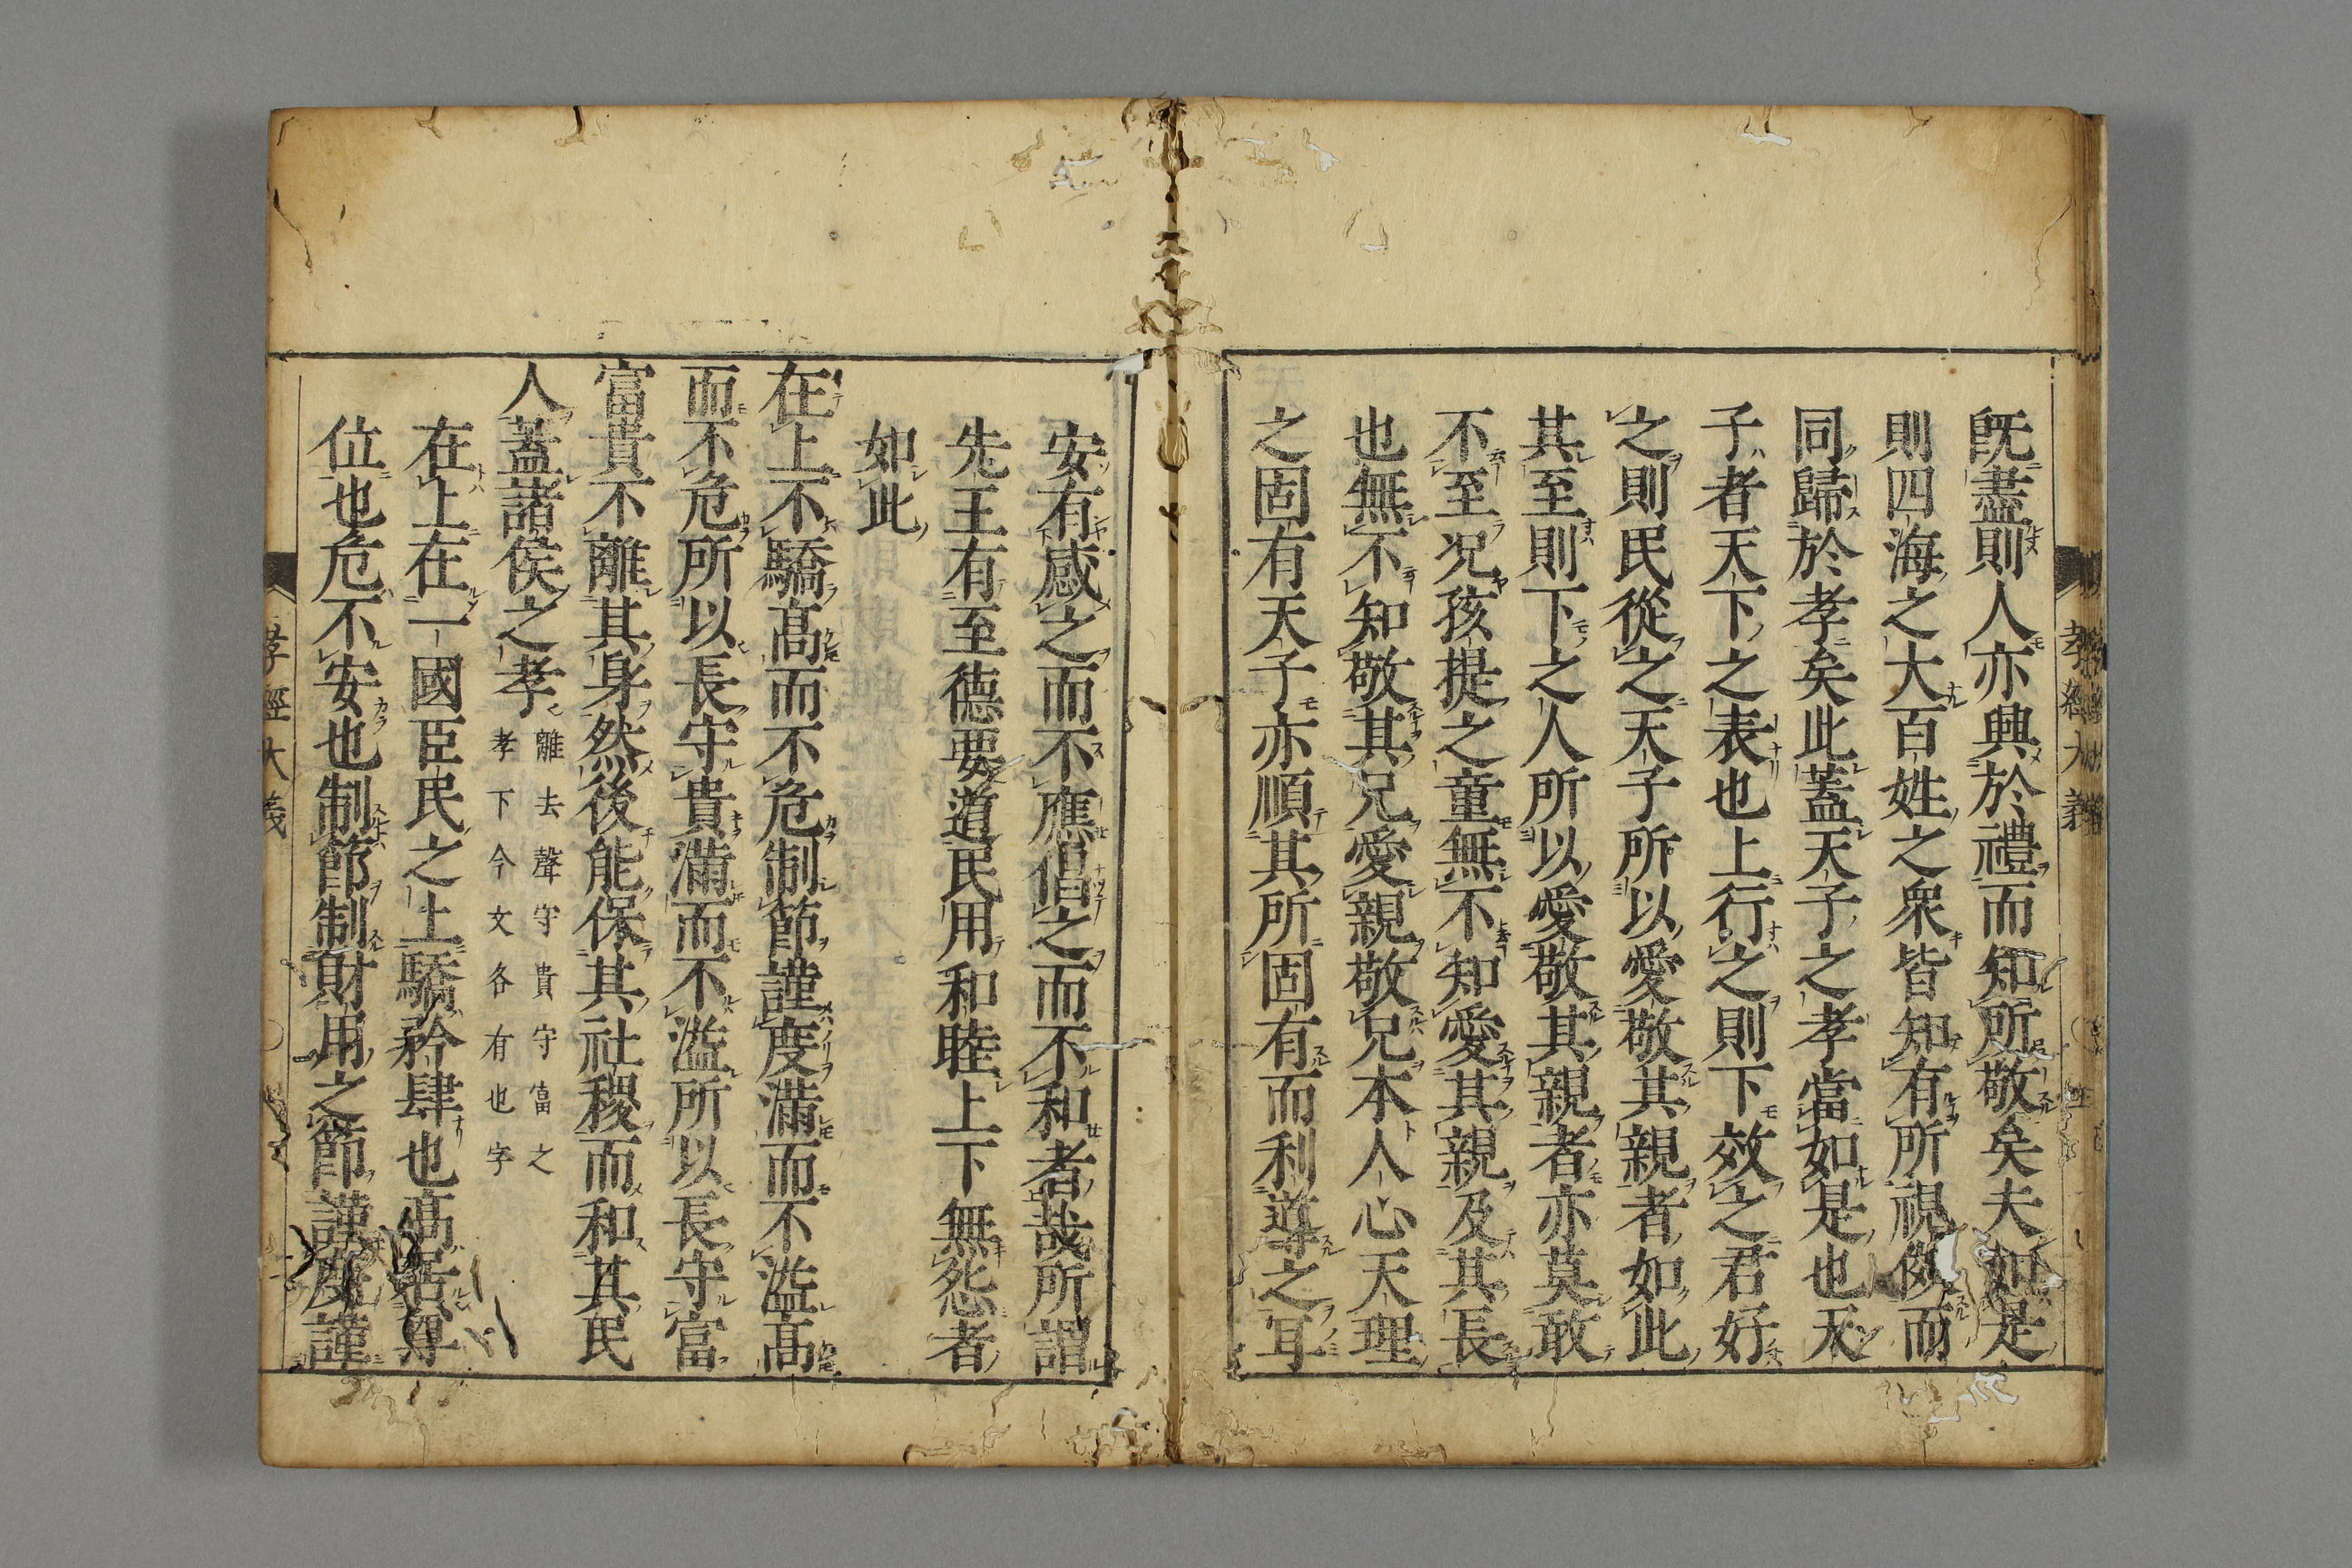 既盡則人亦興於禮而知所敬矣夫如是
則四海之大百姓之衆皆知有所視傚而
同歸於孝矣此蓋天子之孝當如是也天
子者天下之表也上行之則下效之君好
之則民從之天子所以愛敬其親者如此
其至則下之人所以愛敬其親者亦莫敢
不至况孩提之童無不知愛其親及其長
也無不知敬其兄愛親敬兄本人心天理
之固有天子亦順其所固有而利導之耳
安有感之而不應倡之而不和者哉所謂
先王有至德要道民用和睦上下無怨者
如此
在上不驕髙而不危制節謹度滿而不溢髙
而不危所以長守貴滿而不溢所以長守富
富貴不離其身然後能保其社稷而和其民
人蓋諸侯之孝
離去聲守貴守富之
孝下今文各有也字
在上在一國臣民之上驕矜肆也髙居尊
位也危不安也制節制財用之節謹度謹
孝經大義